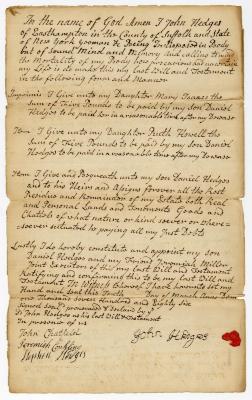 In the name of God Amen I John Hedges
of Easthampton in the County of Suffolk and State
of New York Yeoman & Being Indisposed in Body
but of Sound Mind and Memory and calling to mind
the Mortality of my Body how precarious and uncertain
my Life is do make this my last Will and Testament
in the following form and Manner
Imprimis I Give unto my Daughter Mary
Sum of Five Pounds to be paid by my son Daniel
Hedges to be paid her in a reasonable time after my Decease
Item I Give unto my Daughter Ruth Howell the
Sum of Five Pounds to be paid by my son Daniel
Hedges to be paid in a reasonable time after my Decease
Item I Give and Bequeath unto my son Daniel Hedges
and to his Heirs and Assigns forever all the Rest
Residue and Remainder of my Estate both Real
and Personal Lands and Tenements Goods and
Chattels of what nature or kind soever or where=
=soever situated he paying all my Just Debts
Lastly I do hereby constitute and appoint my son
Daniel Hedges and my Friend Jeremiah Miller
Joint Executors of this my last Will and Testament
Ratifying and confirming this to be my last Will and
Testament In Witness whereof I have hereunto set my
Hand and Seal this Tenth Day of March Anno Dom
one Thousand Seven Hundred and Eighty Six
Signed Seal'd pronounced & Declared by
John Hedges as his last Will & Testament
In presence of us
John Hedges
John Chatfield
Jeremiah Conkling
Stephen Hedges